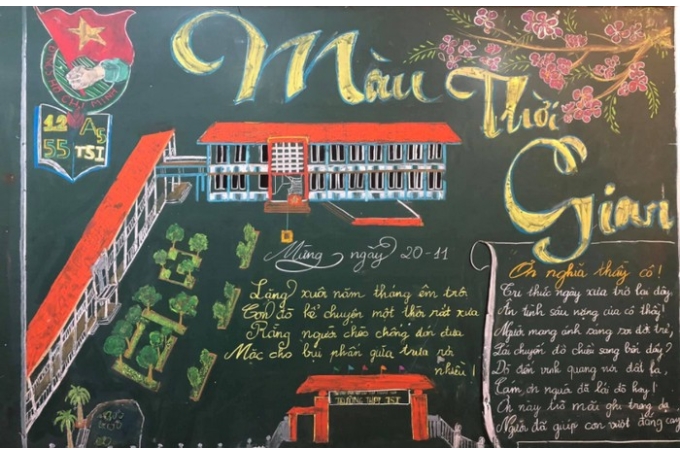 HỒ CHÍ MINH
12 A5
55 TSI
Màu
Thời
Gian
Mừng ngày 20-11
Lặng xuôi năm tháng êm trôi
Con đò kể chuyện một thời rất xưa
Rằng người chèo chống đón đưa
Mặc cho bụi phấn giữa trưa rơi
nhiều!
TRƯỜNG THPT TSI
Ơn nghĩa thầy cô!
Tri thức ngày xưa trở lại đây,
Ân tình sâu nặng của cô thầy!
Người mang ánh sáng soi đời trẻ,
Lái chuyến đò chiều sang bến
đến vinh quang nơi đất lạ,
Cám ơn người đã lái đò hay!
Ơn này trò mãi ghi trong dạ,
Người đã giúp con vượt đắng cay